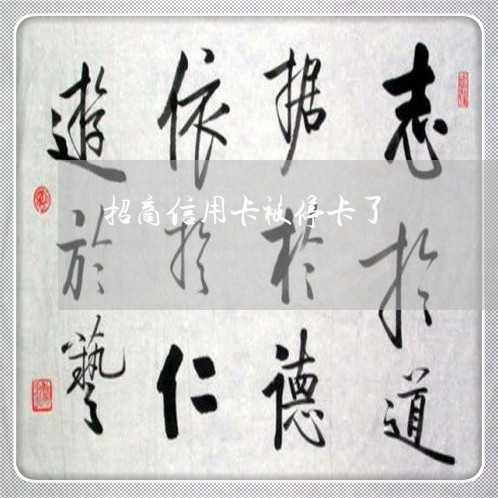 志於道
据於德
依於仁
遊於藝
招商信用卡被停卡了